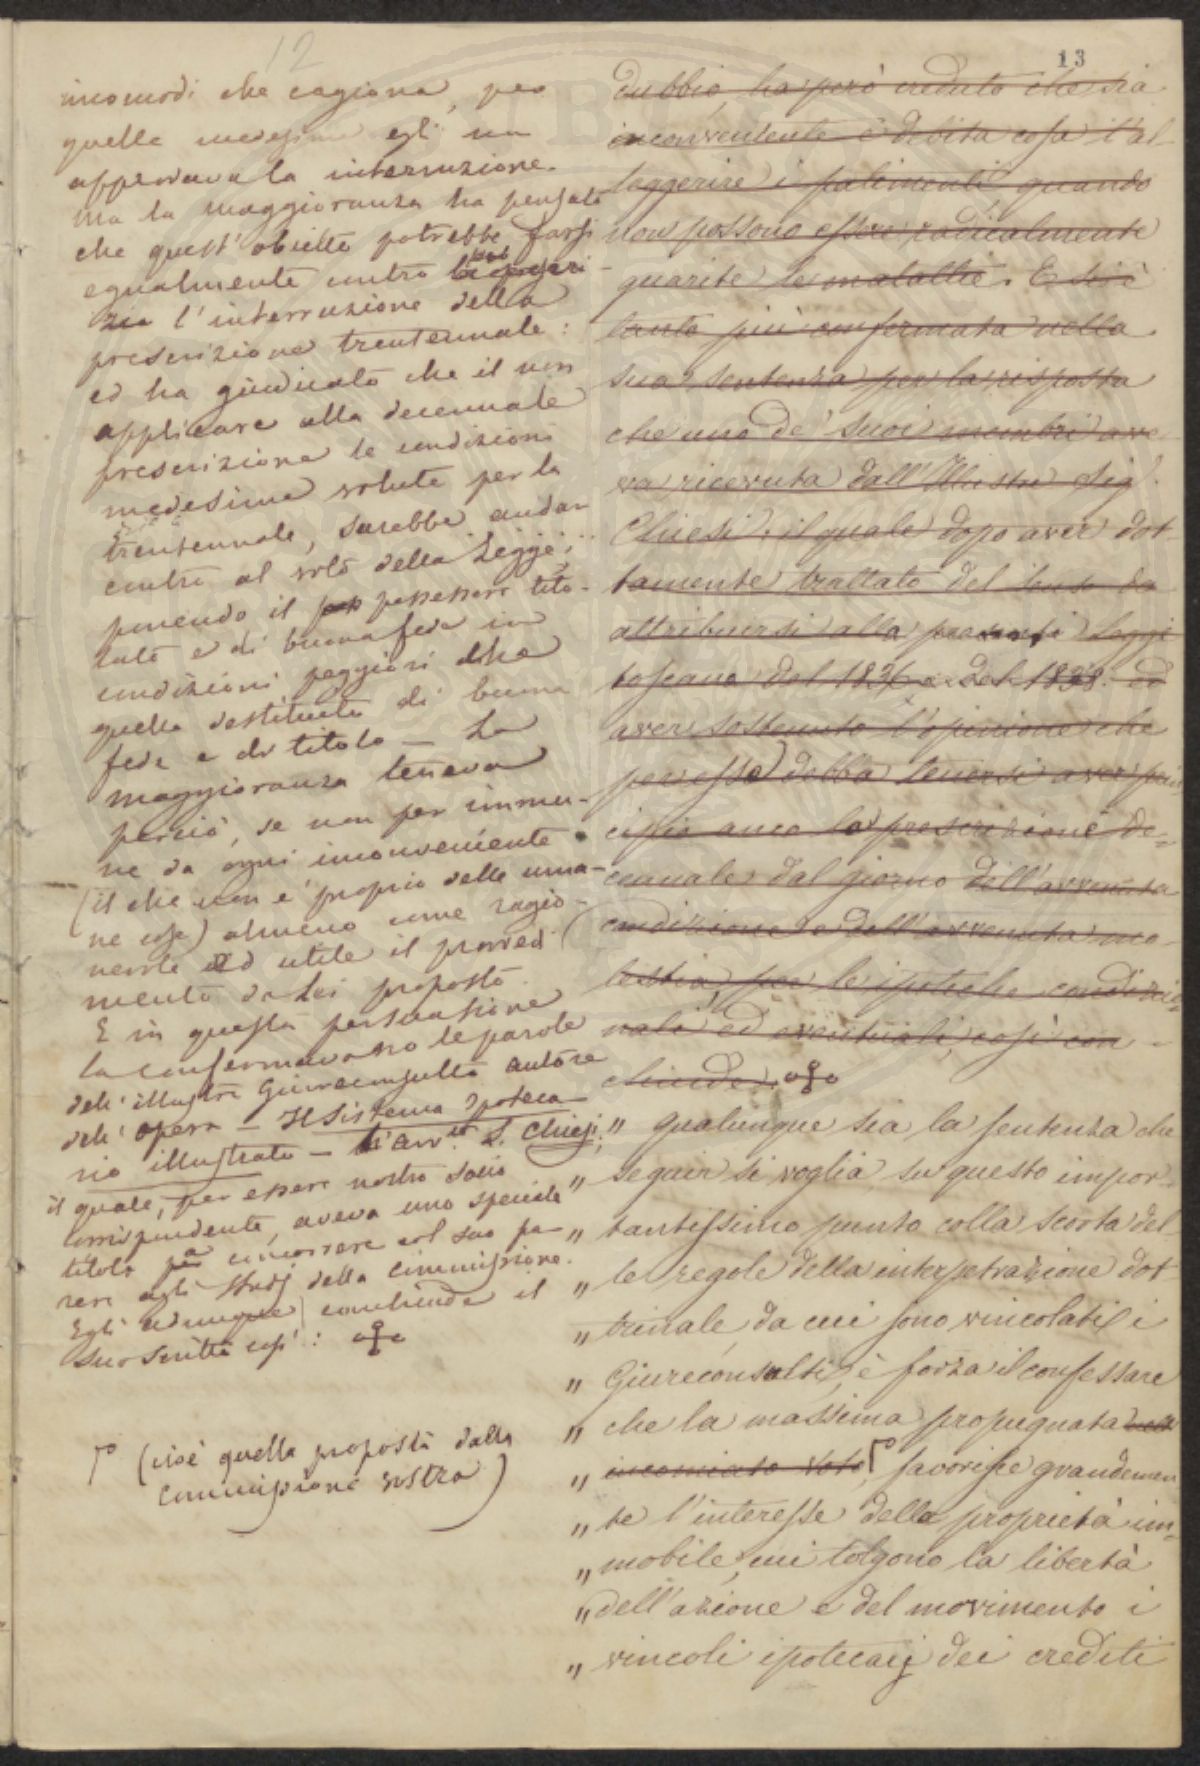 12
13
incomodi che cagiona, per
quelle medesime egli non
approvava la interruzione.
Ma la maggioranza ha pensato
che quest'obietto potrebbe farsi
egualmente contro
l'interruzione della
prescrizione trentennale:
ed ha giudicato che il non
applicare alla decennale
prescrizione le condizioni
medesime volute per la
trentennale, sarebbe andar
contro al voto della Legge;
ponendo il possessore tito-
lato e di buona fede in
condizioni peggiori che
quello destituito di buona
fede e di titolo — La
maggioranza teneva
perciò, se non per immu-
ne da ogni inconveniente
(il che non è proprio delle uma-
ne cose) almeno come ragio-
nevole ed utile il provvedi-
mento da lei proposto.
E in questa persuasione
la confermavano le parole
dell'illustre Giureconsulto autore
dell'opera — Il Sistema Ipoteca-
rio illustrato — L. Chiesi;
il quale, per essere nostro socio
corrispondente, aveva uno speciale
titolo a concorrere col suo pa-
rere agli studj della Commissione.
Egli adunque conchiude il
suo scritto così:
(cioè quella proposta dalla
Commissione nostra)
dubbio, ha però creduto che sia
conveniente e debita cosa l'al-
leggerire i patimenti, quando
non possono essere radicalmente
guarite le malattie. E si è
tanto più confermata nella
sua sentenza per la risposta
che uno de' suoi membri ave-
va ricevuta dall'Illustre Sig.
Chiesi; il quale dopo aver dot-
tamente trattato del senso da
attribuirsi alla Leggi
toscane del 1836 e del 1838. ed
aver sostenuto l'opinione che
per esse debba tenersi aver prin-
cipio anco la prescrizione de-
cennale dal giorno dell'avvenuta
condizione o dell'avvenuta mo-
lestia, per le ipoteche condizio-
nali ed eventuali, così con-
chiude:
" qualunque sia la sentenza che
" seguir si voglia su questo impor-
" tantissimo punto colla scorta del-
" le regole della interpretazione dot-
" trinale da cui sono vincolati i
" Giureconsulti, è forza il confessare
" che la massima propugnata nell'
" incominciato voto favorisce grandemen
" te l'interesse della proprietà im-
" mobile, cui tolgono la libertà
" dell'azione e del movimento i
" vincoli ipotecarj dei crediti